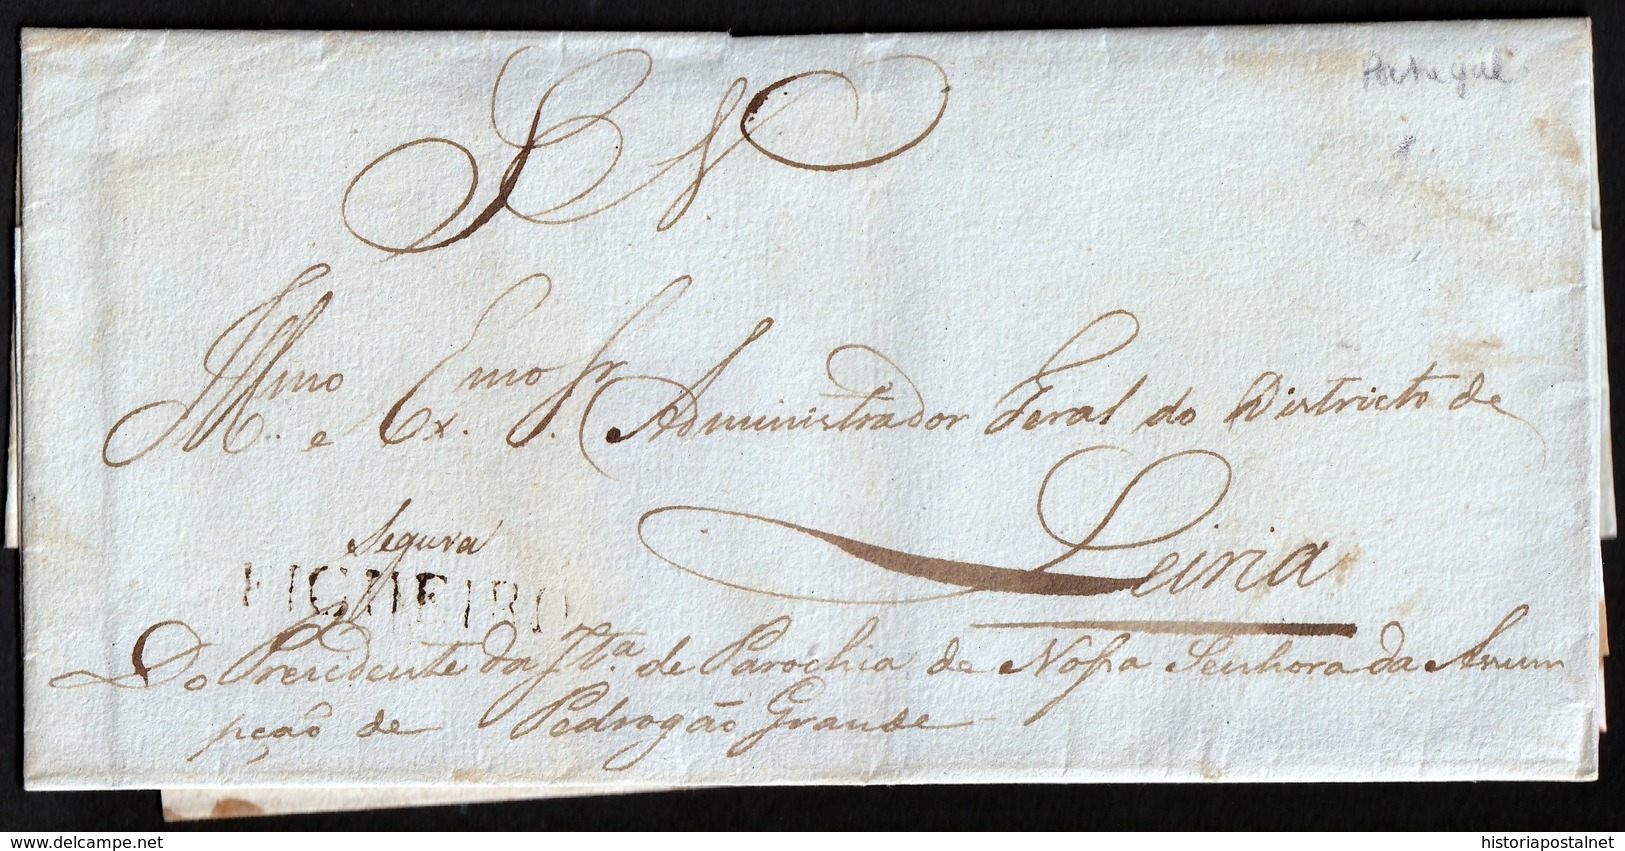 Portugal
S N
Illmo e Exmo Sr. Administrador Geral do Districto de
Leiria
Segura
FIGUEIRO
Do Presidente da Jta. de Parochia de Nossa Senhora da Assum
pção de Pedrogão Grande
historiapostalnet